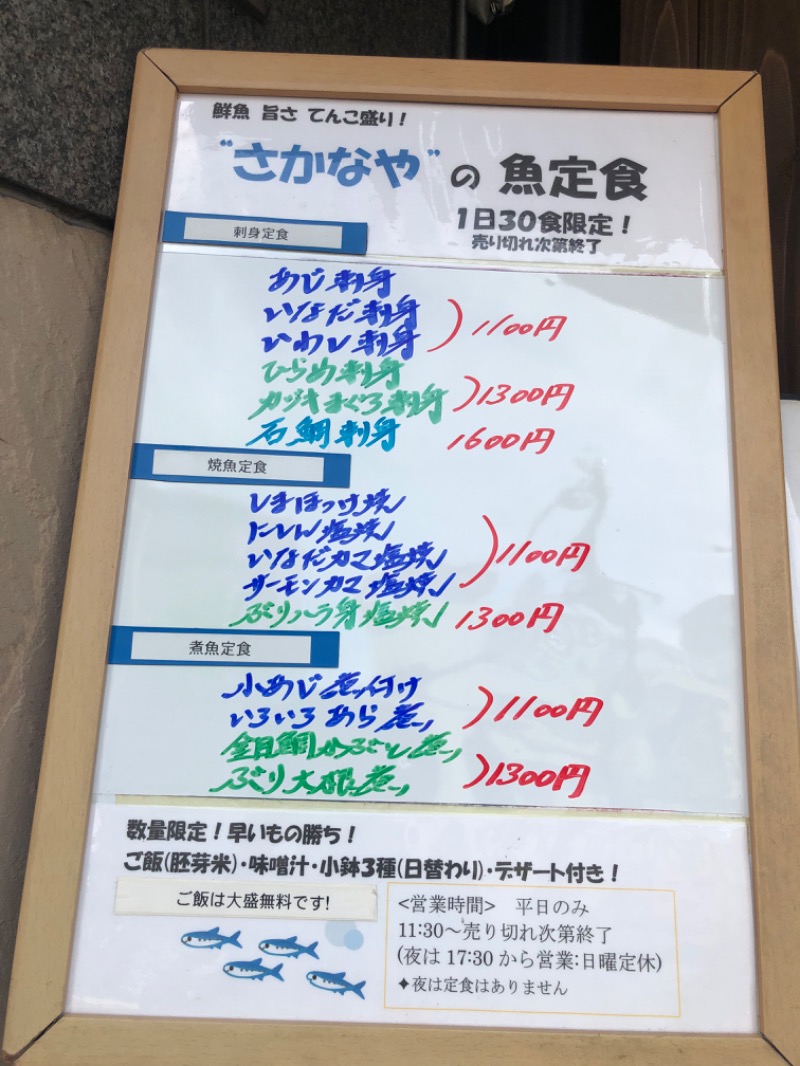 鮮魚 旨さ てんこ盛り!
"さかなや"の 魚定食
1日30食限定!
売り切れ次第終了
刺身定食
あじ刺身
いなだ刺身
いわし刺身
1100円
ひらめ刺身
カヅキまぐろ刺身
1300円
石鯛刺身 1600円
焼魚定食
しまほっけ焼
にしん塩焼
いなだカマ塩焼
サーモンカマ塩焼
1100円
ぶりハラ身塩焼 1300円
煮魚定食
小あじ煮付け
いろいろあら煮
1100円
金目鯛かぶと煮
ぶり大根煮
1300円
数量限定!早いもの勝ち!
ご飯(胚芽米)・味噌汁・小鉢3種(日替わり)・デザート付き!
ご飯は大盛無料です!
<営業時間> 平日のみ
11:30～売り切れ次第終了
(夜は 17:30 から営業:日曜定休)
✦夜は定食はありません